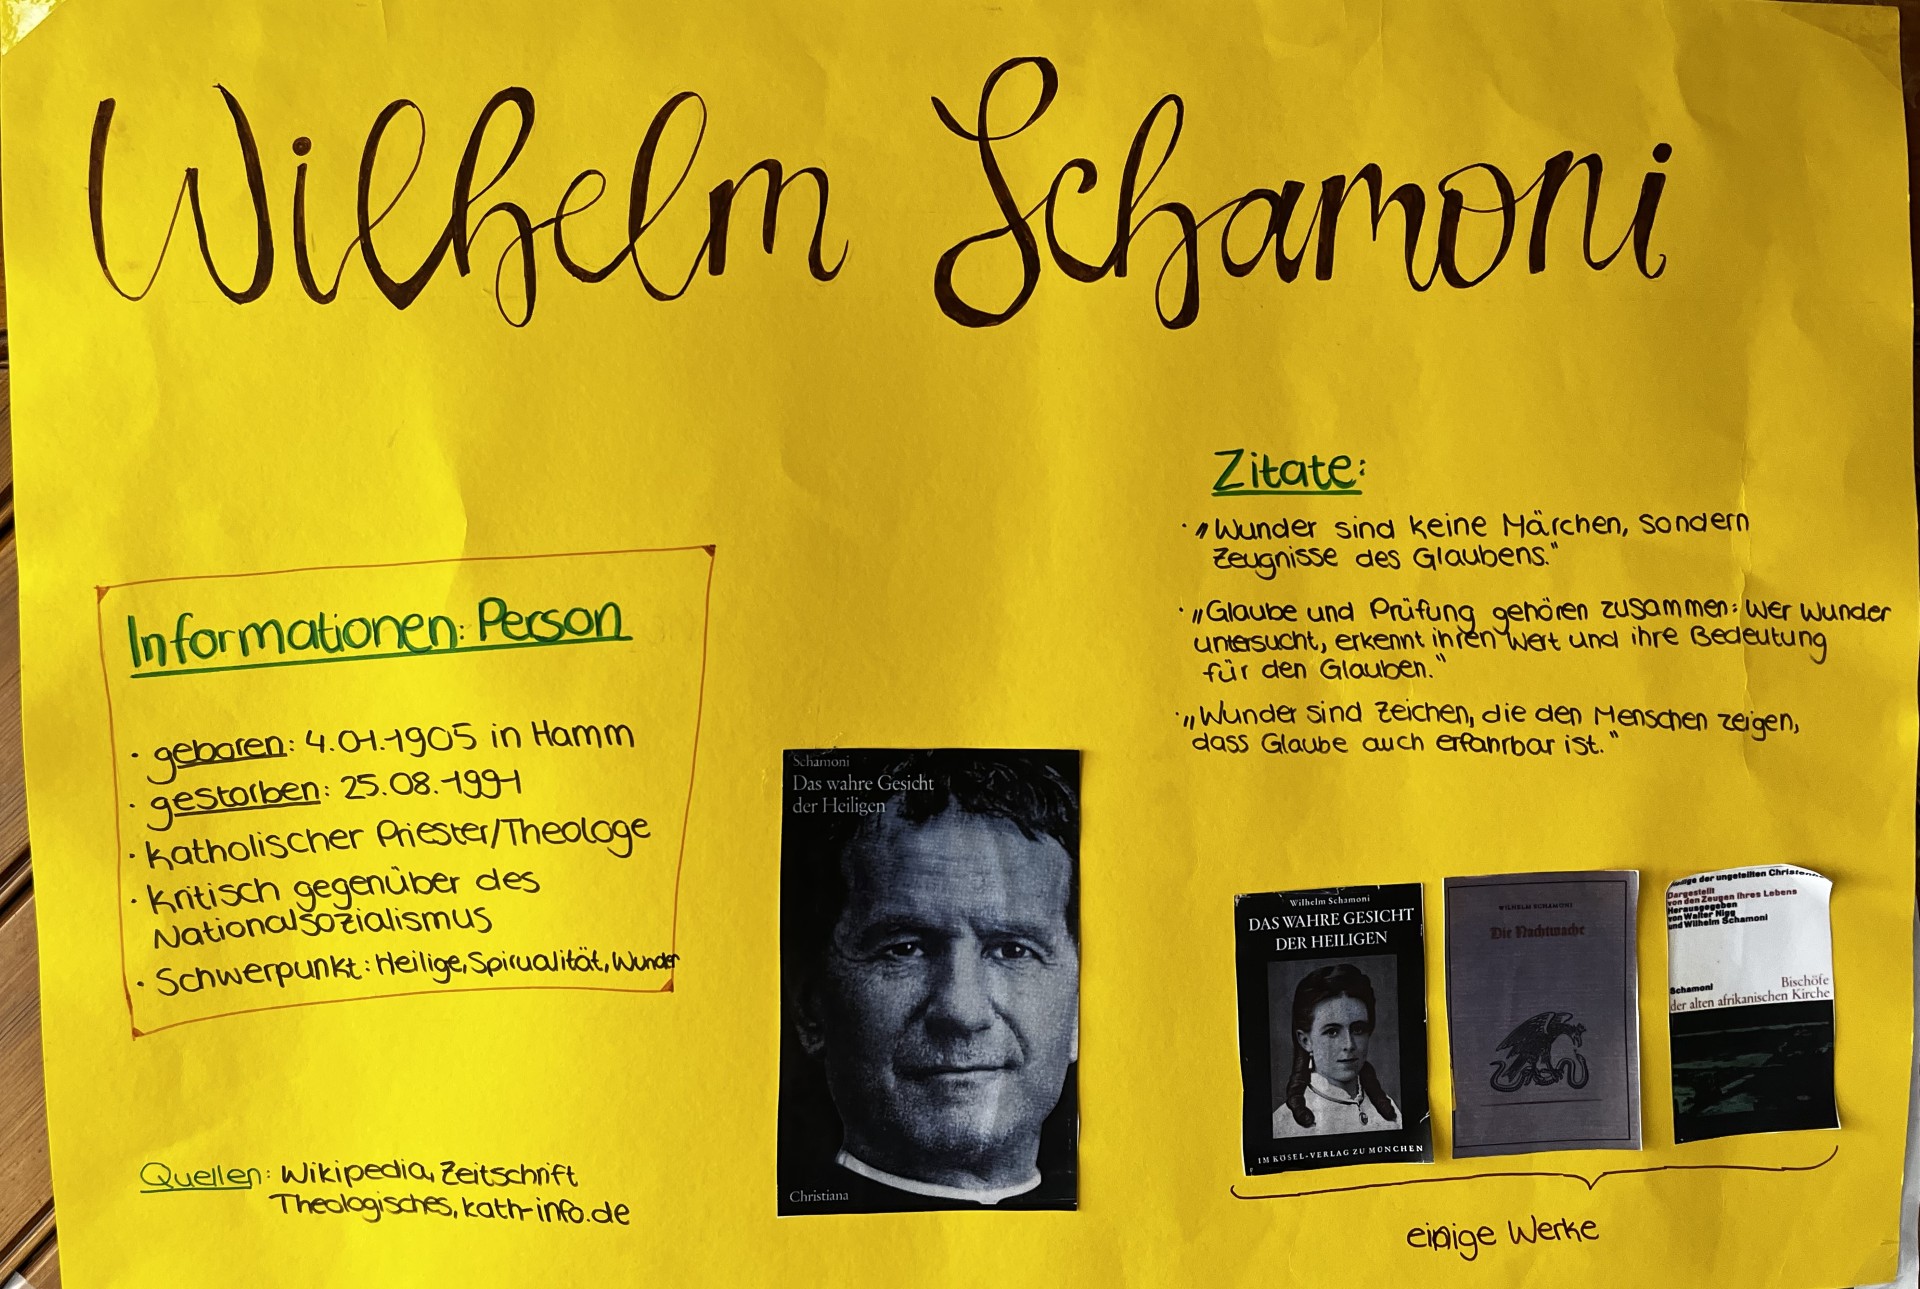 Wilhelm Schamoni
Informationen: Person
· geboren: 4.01.1905 in Hamm
· gestorben: 25.08.1991
· katholischer Priester/Theologe
· kritisch gegenüber des
Nationalsozialismus
· Schwerpunkt: Heilige, Spirualität, Wunder
Quellen: Wikipedia, Zeitschrift
Theologisches, kath-info.de
Schamoni
Das wahre Gesicht
der Heiligen
Christiana
Zitate:
· „Wunder sind keine Märchen, sondern
Zeugnisse des Glaubens."
· „Glaube und Prüfung gehören zusammen: wer Wunder
untersucht, erkennt ihren Wert und ihre Bedeutung
für den Glauben."
· „Wunder sind Zeichen, die den Menschen zeigen,
dass Glaube auch erfahrbar ist."
Wilhelm Schamoni
DAS WAHRE GESICHT
DER HEILIGEN
IM KÖSEL-VERLAG ZU MÜNCHEN
WILHELM SCHAMONI
Die Nachtwache
der ungeteilten
Dargestellt
von den Zeugen ihres Lebens
Herausgegeben
von Walter Nigg
und Wilhelm Schamoni
Schamoni
Bischöfe
der alten afrikanischen Kirche
einige Werke